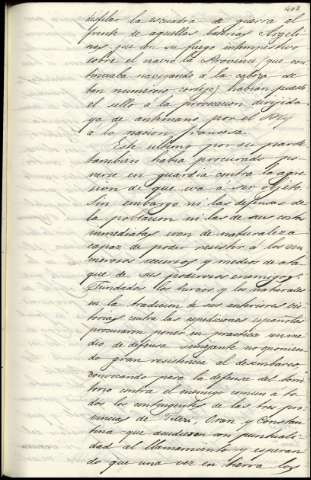 403
desfilar la escuadra de guerra al
frente de aquellas baterias Argeli-
nas que con su fuego intempestivo
sobre el navio la Provence (que con-
tinuaba navegando á la cabeza de
tan numeroso cortejo) habian puesto
el sello á la provocacion dirigida
ya de antemano por el Dey
á la nacion francesa.
Este ultimo por su parte
tambien habia procurado po-
nerse en guardia contra la agre-
sion de que iva á ser objeto.
Sin embargo ni las defensas de
la poblacion ni las de sus costas
inmediatas eran de naturaleza
capaz de poder resistir á los
numerosos recursos y medios de ata-
que de sus poderosos enemigos.
Fundados los turcos y los naturales
en la tradicion de sus anteriores vic-
torias contra las espediciones españolas
procuraron poner en practica un me-
dio de defensa semejante no oponien-
do gran resistencia al desembarco,
convocando para la defensa del terri-
torio contra el enemigo comun á to-
dos los contingentes de las tres pro-
vincias de Titeri, Oran y Constan-
tina que acudieron con puntuali-
dad al llamamiento y esperan-
do que una vez en tierra los